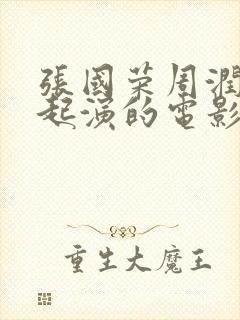 張國荣周潤
起演的電影
重生大魔王